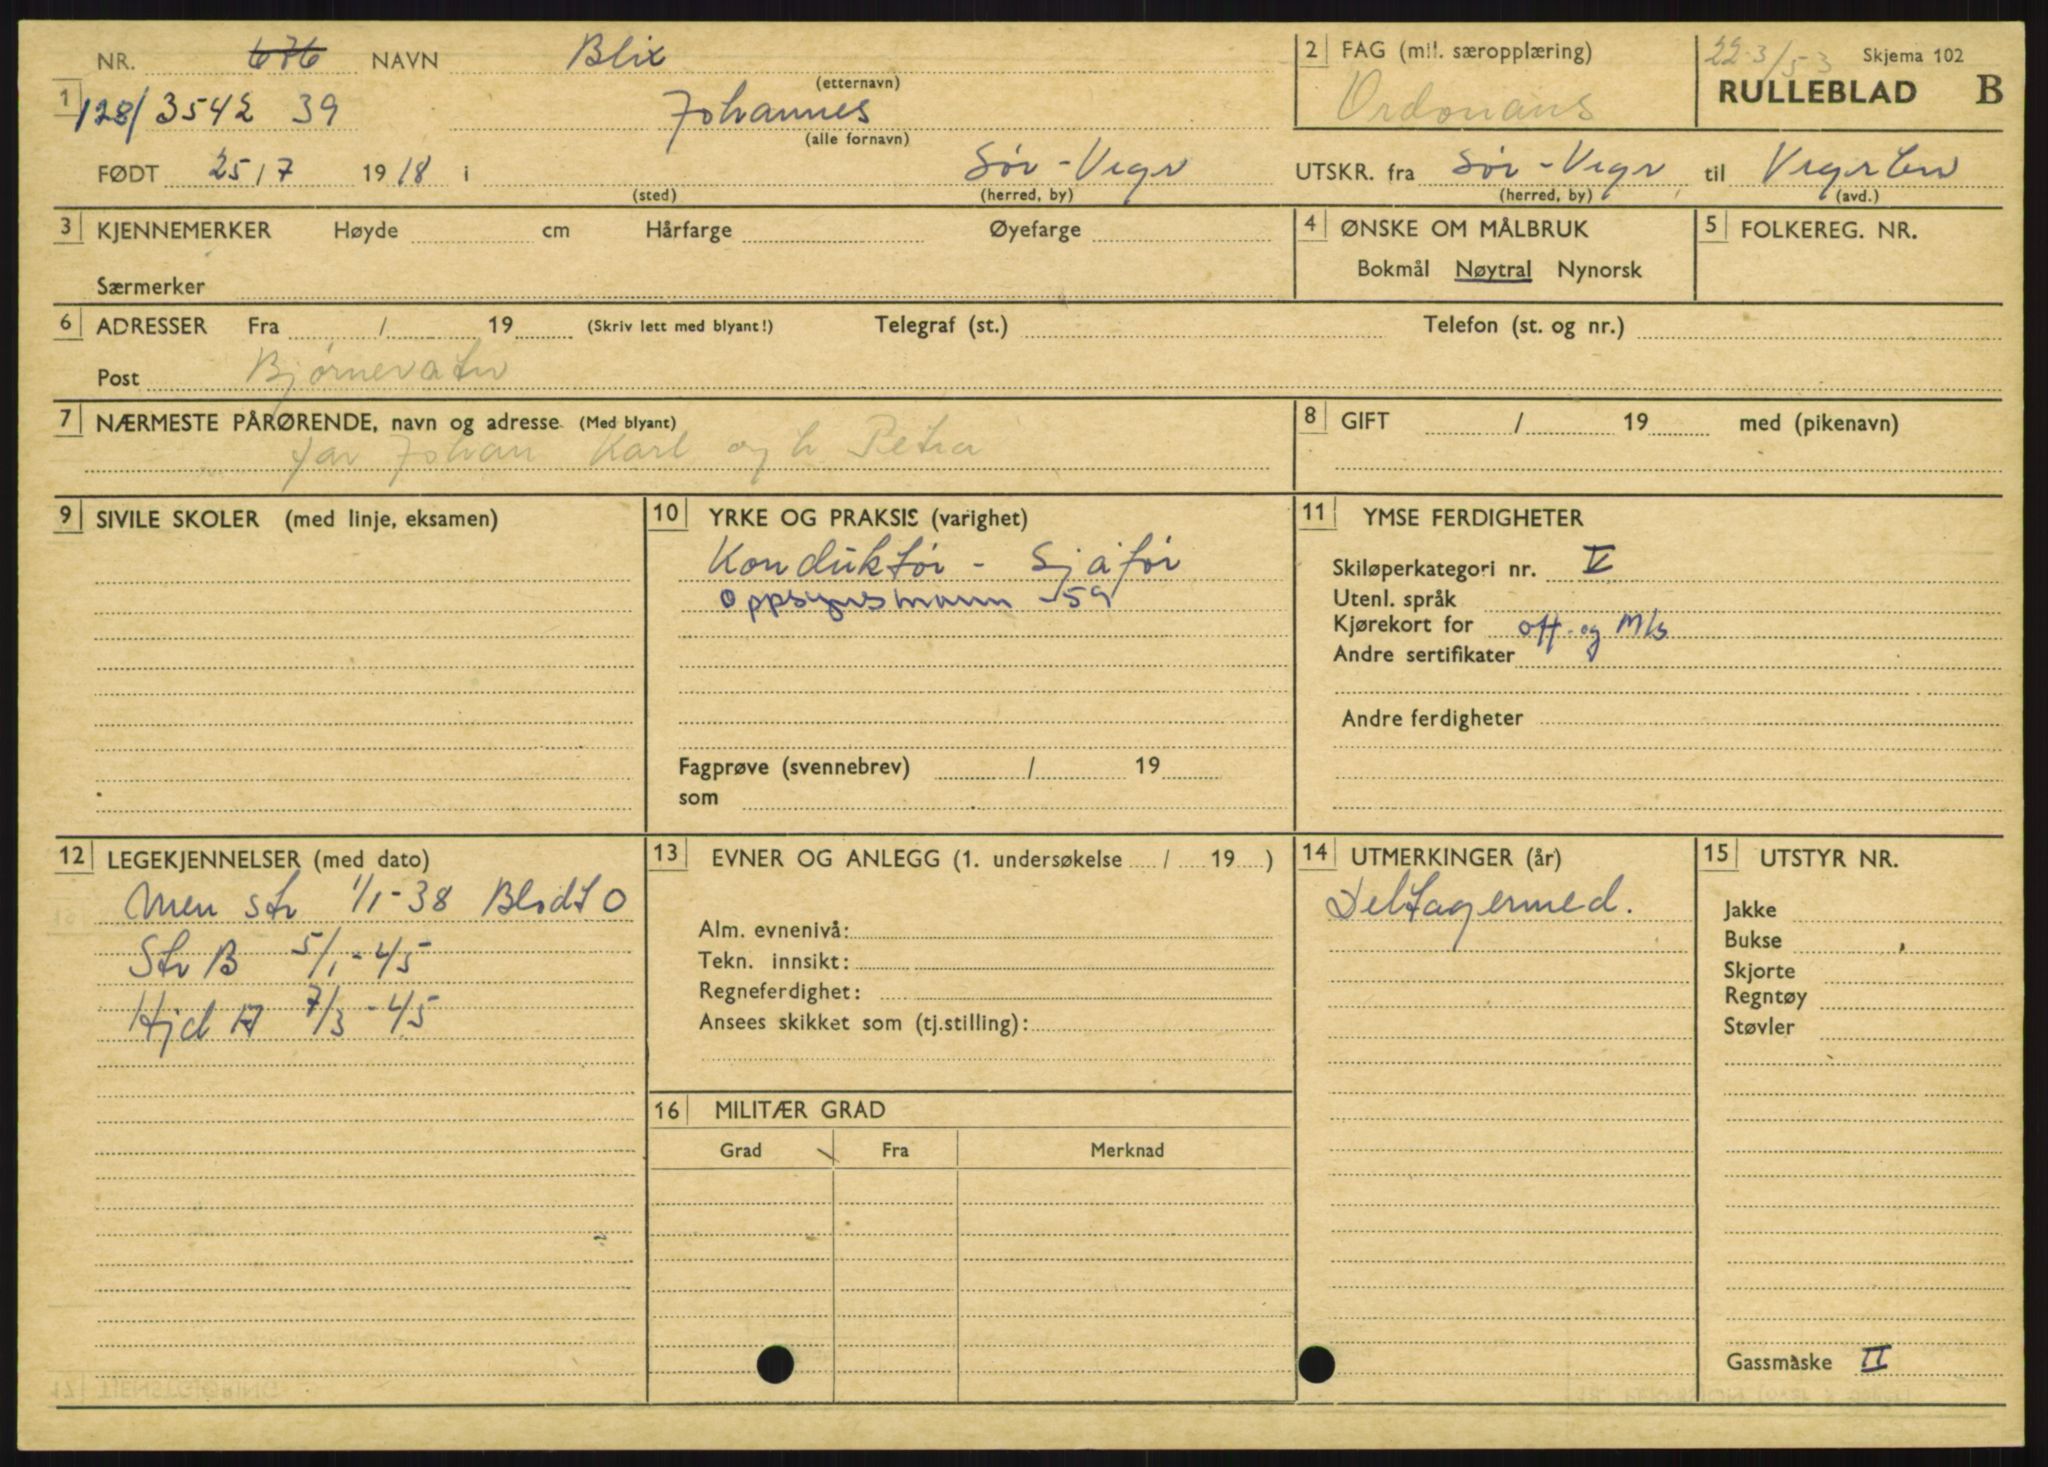 NR. 676 NAVN Blix (etternavn)
1 128/3542 39 Johannes (alle fornavn)
FØDT 25/7 1918 i (sted) Sør-Vgr (herred, by)
2 FAG (mil. særopplæring)
Ordonans
22-3/53 Skjema 102
RULLEBLAD B
UTSKR. fra Sør-Vgr (herred, by) til (avd.)
3 KJENNEMERKER Høyde cm Hårfarge Øyefarge
Særmerker
4 ØNSKE OM MÅLBRUK
Bokmål Nøytral Nynorsk
5 FOLKEREG. NR.
6 ADRESSER Fra / 19 (Skriv lett med blyant!) Telegraf (st.) Telefon (st. og nr.)
Post Bjørnevatn
7 NÆRMESTE PÅRØRENDE, navn og adresse (Med blyant)
far Johan Karl og h Petra
8 GIFT / 19 med (pikenavn)
9 SIVILE SKOLER (med linje, eksamen)
10 YRKE OG PRAKSIS (varighet)
Konduktør - Sjåfør
Oppsynsmann -59
Fagprøve (svennebrev) / 19
som
11 YMSE FERDIGHETER
Skiløperkategori nr. V
Utenl. språk
Kjørekort for off. og M/s
Andre sertifikater
Andre ferdigheter
12 LEGEKJENNELSER (med dato)
Men str 1/1-38 Blodt O
Str B 5/1-45
Hjd A 7/3-45
13 EVNER OG ANLEGG (1. undersøkelse / 19 )
Alm. evnenivå:
Tekn. innsikt:
Regneferdighet:
Ansees skikket som (tj.stilling):
14 UTMERKINGER (år)
Deltagermed.
15 UTSTYR NR.
Jakke
Bukse
Skjorte
Regntøy
Støvler
Gassmåske II
16 MILITÆR GRAD
Grad Fra Merknad